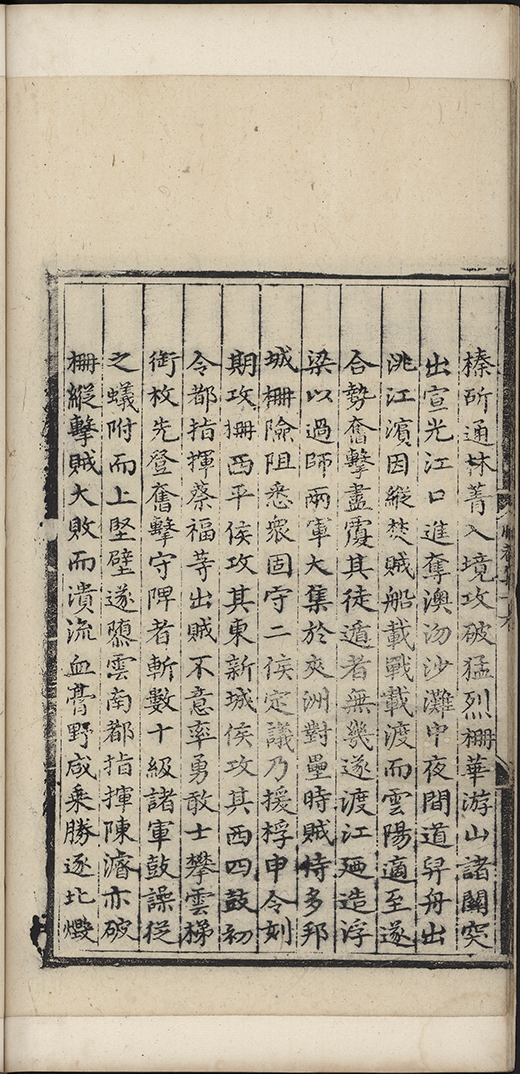 榛所通林菁入境攻破猛烈柵華游山諸關突
出宣光江口進奪澳沕沙灘中夜間道舁舟出
洮江濱因縱焚賊船載戰載渡而雲陽適至遂
合勢奮擊盡覆其徒遁者無幾遂渡江廼造浮
梁以過師兩軍大集於夾洲對壘時賊恃多邦
城柵險阻悉衆固守二侯定議乃援桴申令刻
期攻柵西平侯攻其東新城侯攻其西四鼓初
令都指揮蔡福等出賊不意率勇敢士攀雲梯
銜枚先登奮擊守陴者斬數十級諸軍鼓譟從
之蟻附而上堅壁遂隳雲南都指揮陳濬亦破
柵縱擊賊大敗而潰流血膏野咸乘勝逐北燬